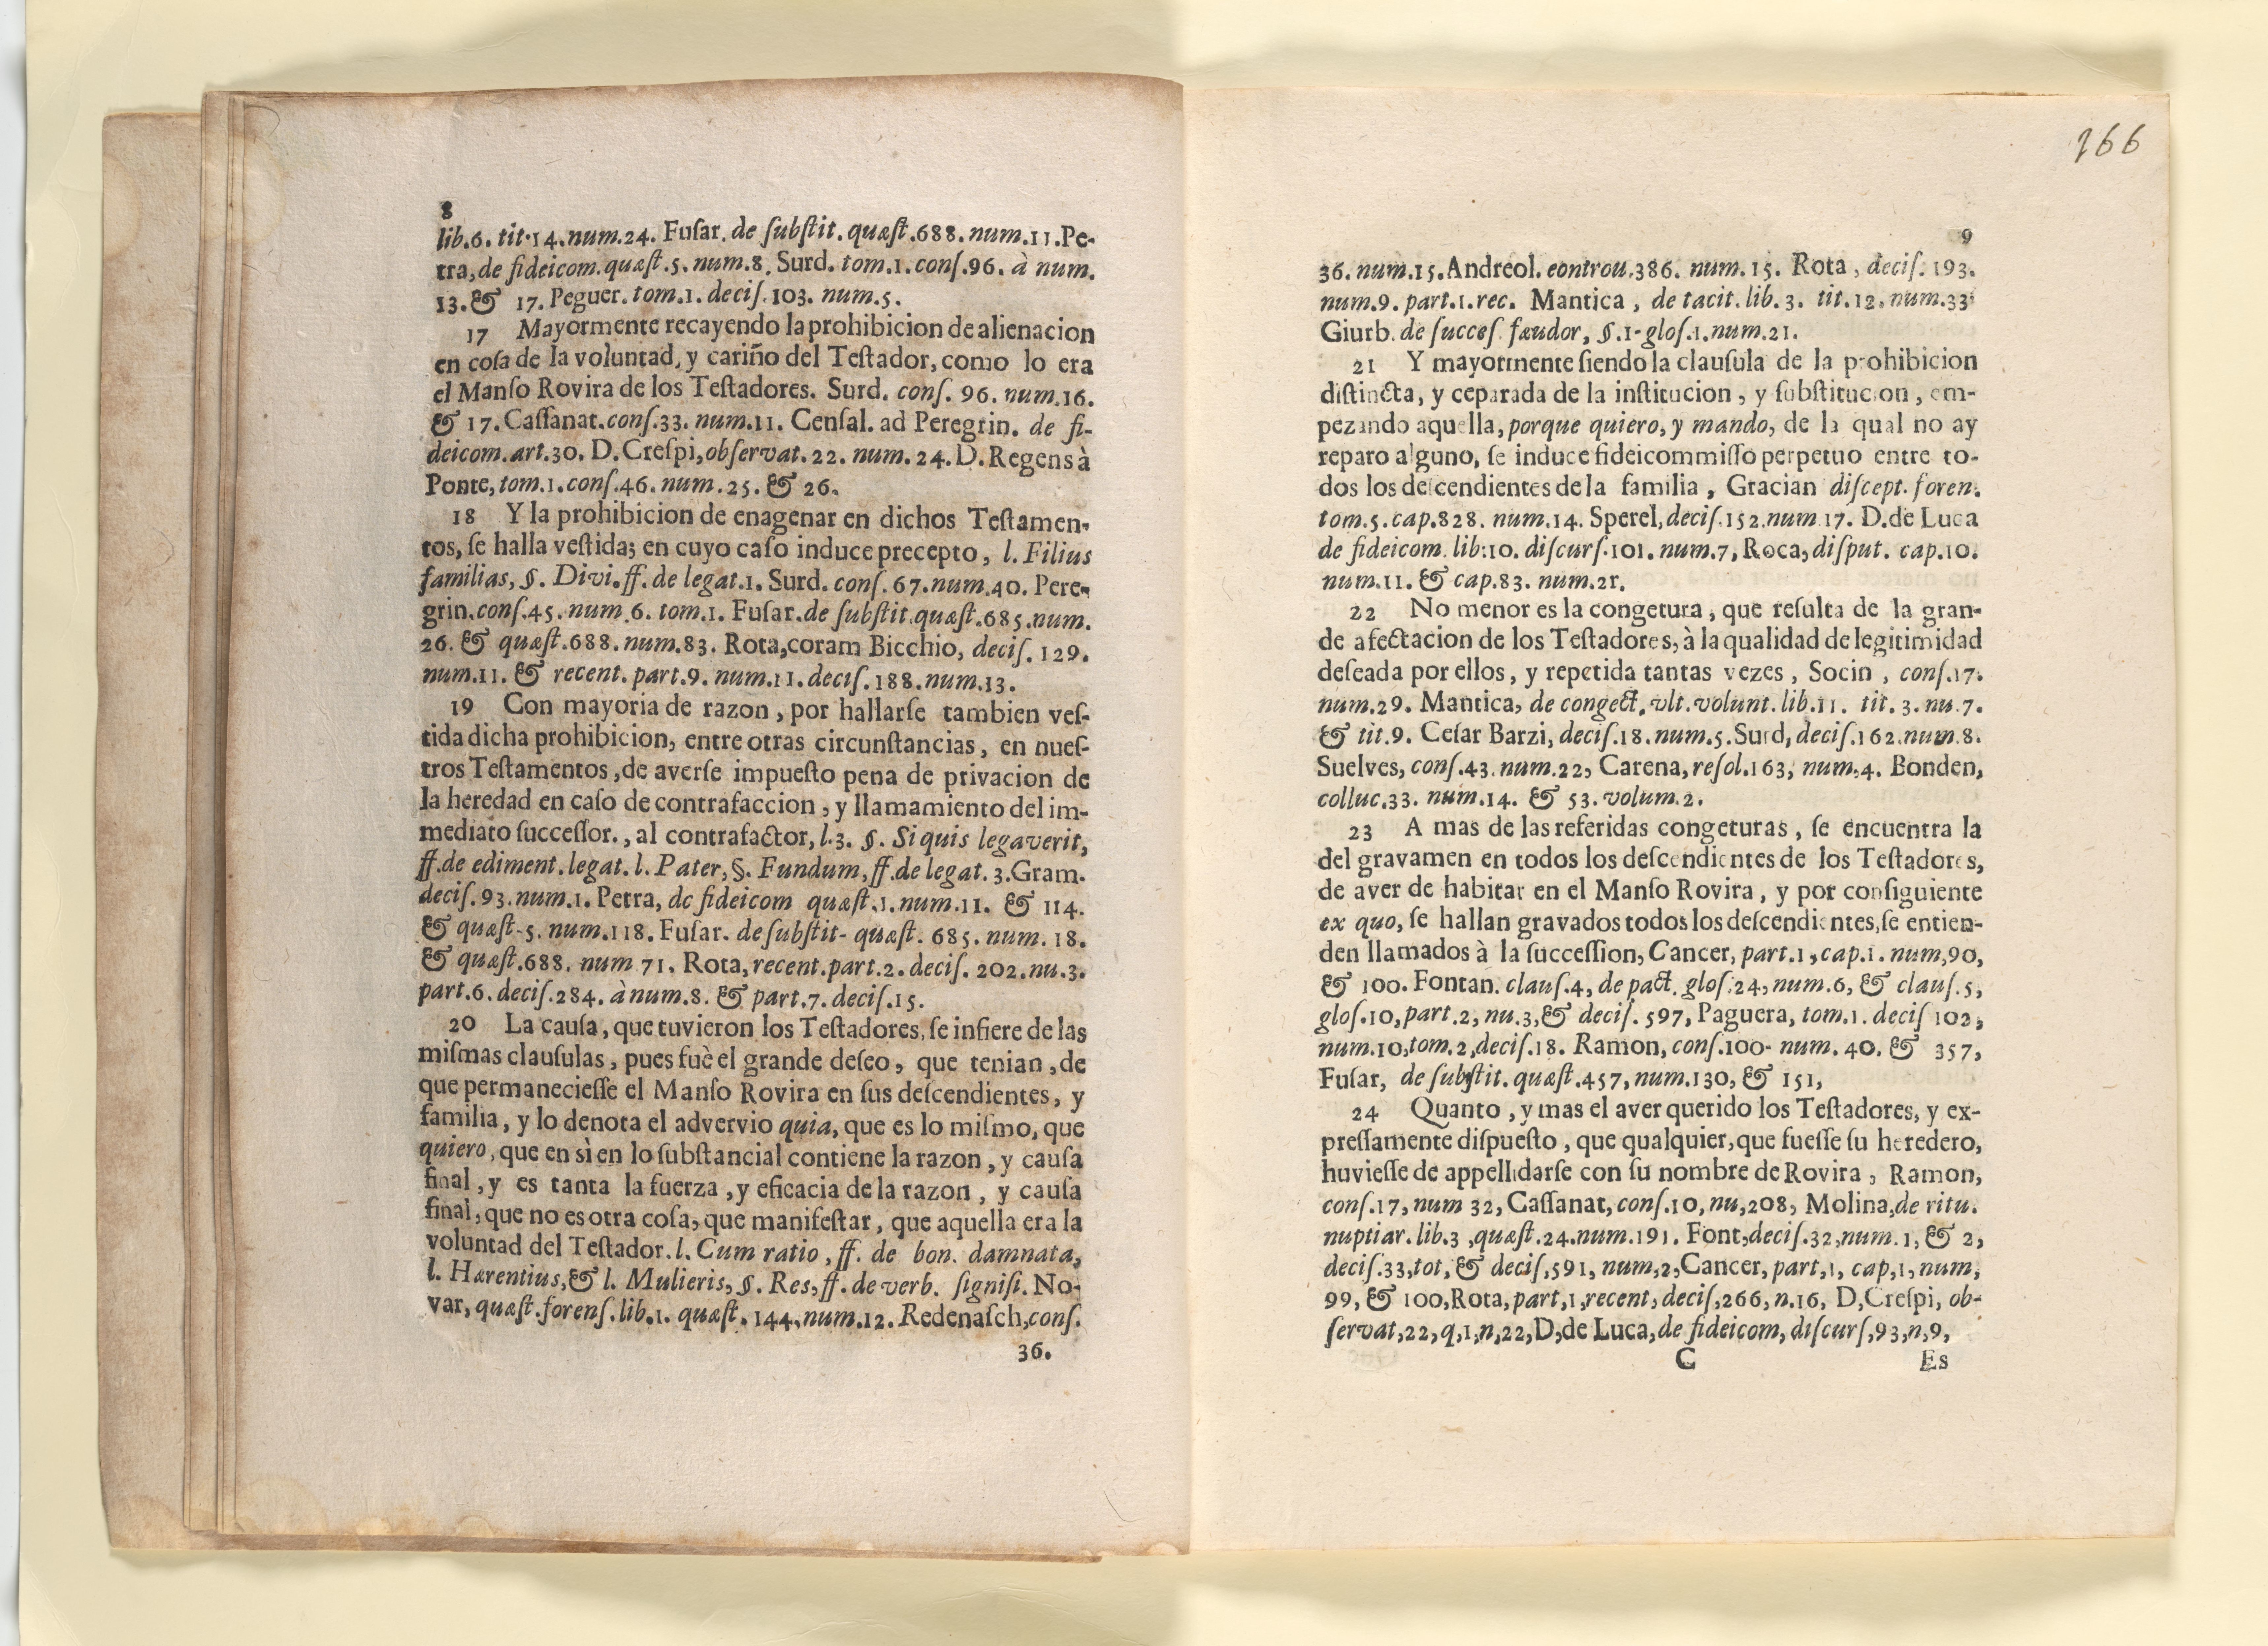 8
lib.6. tit.14.num.24. Fuſar. de ſubſtit. quæſt.688. num.11.Pe-
tra, de fideicom. quæſt.5. num.8. Surd. tom.1. conſ.96. à num.
13.& 17. Peguer. tom.1. deciſ.103. num.5.
17 Mayormente recayendo la prohibicion de alienacion
en coſa de la voluntad, y cariño del Teſtador, como lo era
el Manſo Rovira de los Teſtadores. Surd. conſ. 96. num.16.
& 17. Caſſanat. conſ.33. num.11. Cenſal. ad Peregrin. de fi-
deicom. art.30. D. Creſpi, obſervat. 22. num. 24. D. Regens à
Ponte, tom.1. conſ.46. num.25. & 26.
18 Y la prohibicion de enagenar en dichos Teſtamen-
tos, ſe halla veſtida; en cuyo caſo induce precepto, l. Filius
familias, §. Divi. ff. de legat.1. Surd. conſ. 67. num.40. Pere-
grin. conſ.45. num.6. tom.1. Fuſar. de ſubſtit. quæſt.685. num.
26. & quæſt.688. num.83. Rota, coram Bicchio, deciſ. 129.
num.11. & recent. part.9. num.11. deciſ.188. num.13.
19 Con mayoria de razon, por hallarſe tambien veſ-
tida dicha prohibicion, entre otras circunſtancias, en nueſ-
tros Teſtamentos, de averſe impueſto pena de privacion de
la heredad en caſo de contrafaccion, y llamamiento del im-
mediato ſucceſſor., al contrafactor, l.3. §. Si quis legaverit,
ff. de ediment. legat. l. Pater, §. Fundum, ff. de legat. 3. Gram.
deciſ.93. num.1. Petra, de fideicom quæſt.1. num.11. & 114.
& quæſt-5. num.118. Fuſar. de ſubſtit- quæſt. 685. num. 18.
& quæſt.688. num 71. Rota, recent. part.2. deciſ. 202. nu.3.
part.6. deciſ.284. à num.8. & part.7. deciſ.15.
20 La cauſa, que tuvieron los Teſtadores, ſe infiere de las
miſmas clauſulas, pues fuè el grande deſeo, que tenian, de
que permanecieſſe el Manſo Rovira en ſus deſcendientes, y
familia, y lo denota el advervio quia, que es lo miſmo, que
quiero, que en sì en lo ſubſtancial contiene la razon, y cauſa
final, y es tanta la fuerza, y eficacia de la razon, y cauſa
final, que no es otra coſa, que manifeſtar, que aquella era la
voluntad del Teſtador. l. Cum ratio, ff. de bon. damnata,
l. Hærentius, & l. Mulieris, §. Res, ff. de verb. ſigniſi. No-
var, quæſt. forenſ. lib.1. quæſt. 144, num.12. Redenaſch, conſ.
36.
166
9
36. num.15. Andreol. eontrou.386. num. 15. Rota, deciſ. 193.
num.9. part.1. rec. Mantica, de tacit. lib. 3. tit.12. num.33
Giurb. de ſucceſ. fæudor, §.1- gloſ.1. num.21.
21 Y mayormente ſiendo la clauſula de la prohibicion
diſtincta, y ceparada de la inſtitucion, y ſubſtitucion, em-
pezando aquella, porque quiero, y mando, de la qual no ay
reparo alguno, ſe induce fideicommiſſo perpetuo entre to-
dos los deſcendientes de la familia, Gracian diſcept. foren.
tom.5. cap.828. num.14. Sperel, deciſ.152. num 17. D. de Luca
de fideicom. lib:10. diſcurſ.101. num.7, Roca, diſput. cap.10.
num.11. & cap.83. num.21.
22 No menor es la congetura, que reſulta de la gran-
de afectacion de los Teſtadores, à la qualidad de legitimidad
deſeada por ellos, y repetida tantas vezes, Socin, conſ.17.
num.29. Mantica, de congect. vlt. volunt. lib.11. tit. 3. nu.7.
& tit.9. Ceſar Barzi, deciſ.18. num.5. Surd, deciſ.162. num.8.
Suelves, conſ.43. num.22, Carena, reſol.163, num.4. Bonden,
colluc.33. num.14. & 53. volum.2.
23 A mas de las referidas congeturas, ſe encuentra la
del gravamen en todos los deſcendientes de los Teſtadores,
de aver de habitar en el Manſo Rovira, y por conſiguiente
ex quo, ſe hallan gravados todos los deſcendientes, ſe entien-
den llamados à la ſucceſſion, Cancer, part.1, cap.1. num,90,
& 100. Fontan. clauſ.4, de pact. gloſ.24, num.6, & clauſ.5,
gloſ.10, part.2, nu.3, & deciſ. 597, Paguera, tom.1. deciſ 102,
num.10, tom.2, deciſ.18. Ramon, conſ.100- num. 40. & 357,
Fuſar, de ſubſtit. quæſt.457, num.130, & 151,
24 Quanto, y mas el aver querido los Teſtadores, y ex-
preſſamente diſpueſto, que qualquier, que fueſſe ſu heredero,
huvieſſe de appellidarſe con ſu nombre de Rovira, Ramon,
conſ.17, num 32, Caſſanat, conſ.10, nu,208, Molina, de ritu.
nuptiar. lib.3, quæſt.24. num.191. Font, deciſ.32, num.1, & 2,
deciſ.33, tot, & deciſ,591, num,2, Cancer, part,1, cap,1, num,
99, & 100, Rota, part,1, recent, deciſ,266, n.16, D, Creſpi, ob-
ſervat,22, q,1, n,22, D, de Luca, de fideicom, diſcurſ,93, n,9,
C Es